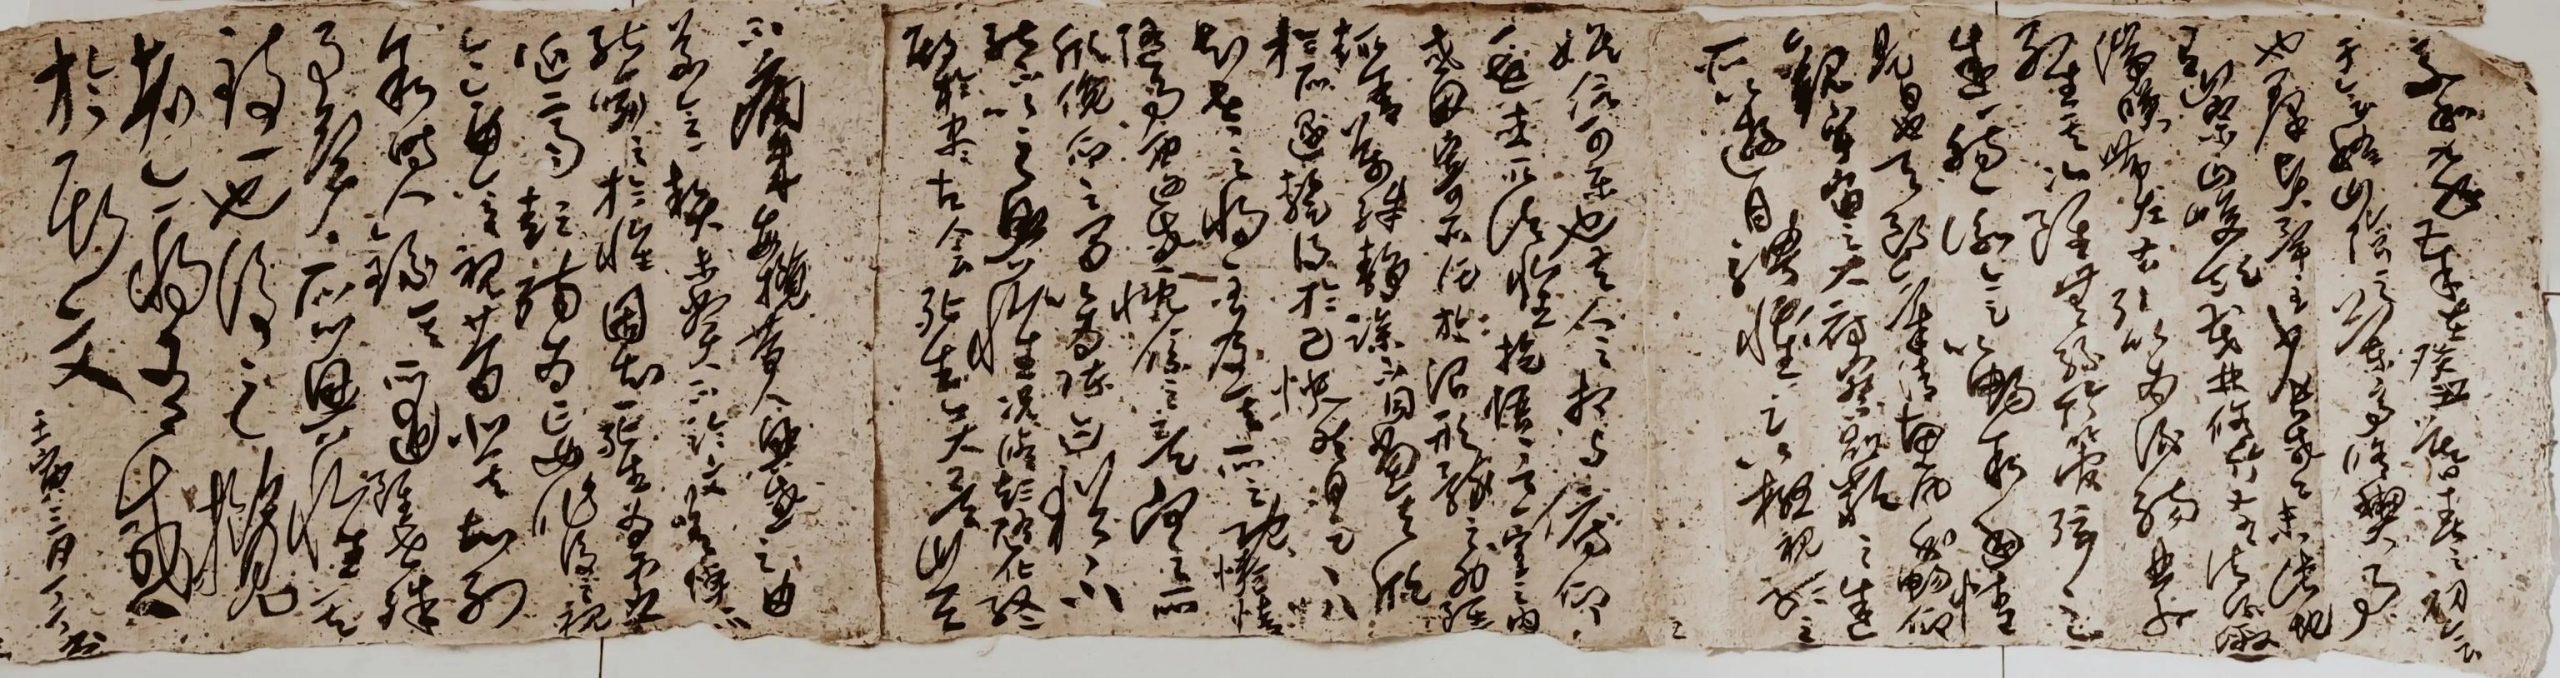 永和九年歲在癸丑暮春之初會
于會稽山陰之蘭亭脩禊事
也群賢畢至少長咸集此地
有崇山峻領茂林脩竹又有清流激
湍暎帶左右引以為流觴曲水
列坐其次雖無絲竹管弦之
盛一觴一詠亦足以暢敘幽情
是日也天朗氣清惠風和暢仰
觀宇宙之大俯察品類之盛
所以遊目騁懷足以極視聽之
娛信可樂也夫人之相與俯仰
一世或取諸懷抱悟言一室之內
或因寄所託放浪形骸之外雖
趣舍萬殊靜躁不同當其欣
於所遇暫得於己快然自足不
知老之將至及其所之既惓情
隨事遷感慨係之矣向之所
欣俛仰之間以為陳迹猶不
能不以之興懷況脩短隨化終
期於盡古人云死生亦大矣豈
不痛哉每攬昔人興感之由
若合一契未嘗不臨文嗟悼不
能喻之於懷固知一死生為虛
誕齊彭殤為妄作後之視
今亦由今之視昔悲夫故列
敘時人錄其所述雖世殊
事異所以興懷其
致一也後之攬
者亦將有感
於斯文
壬寅三月十六 書